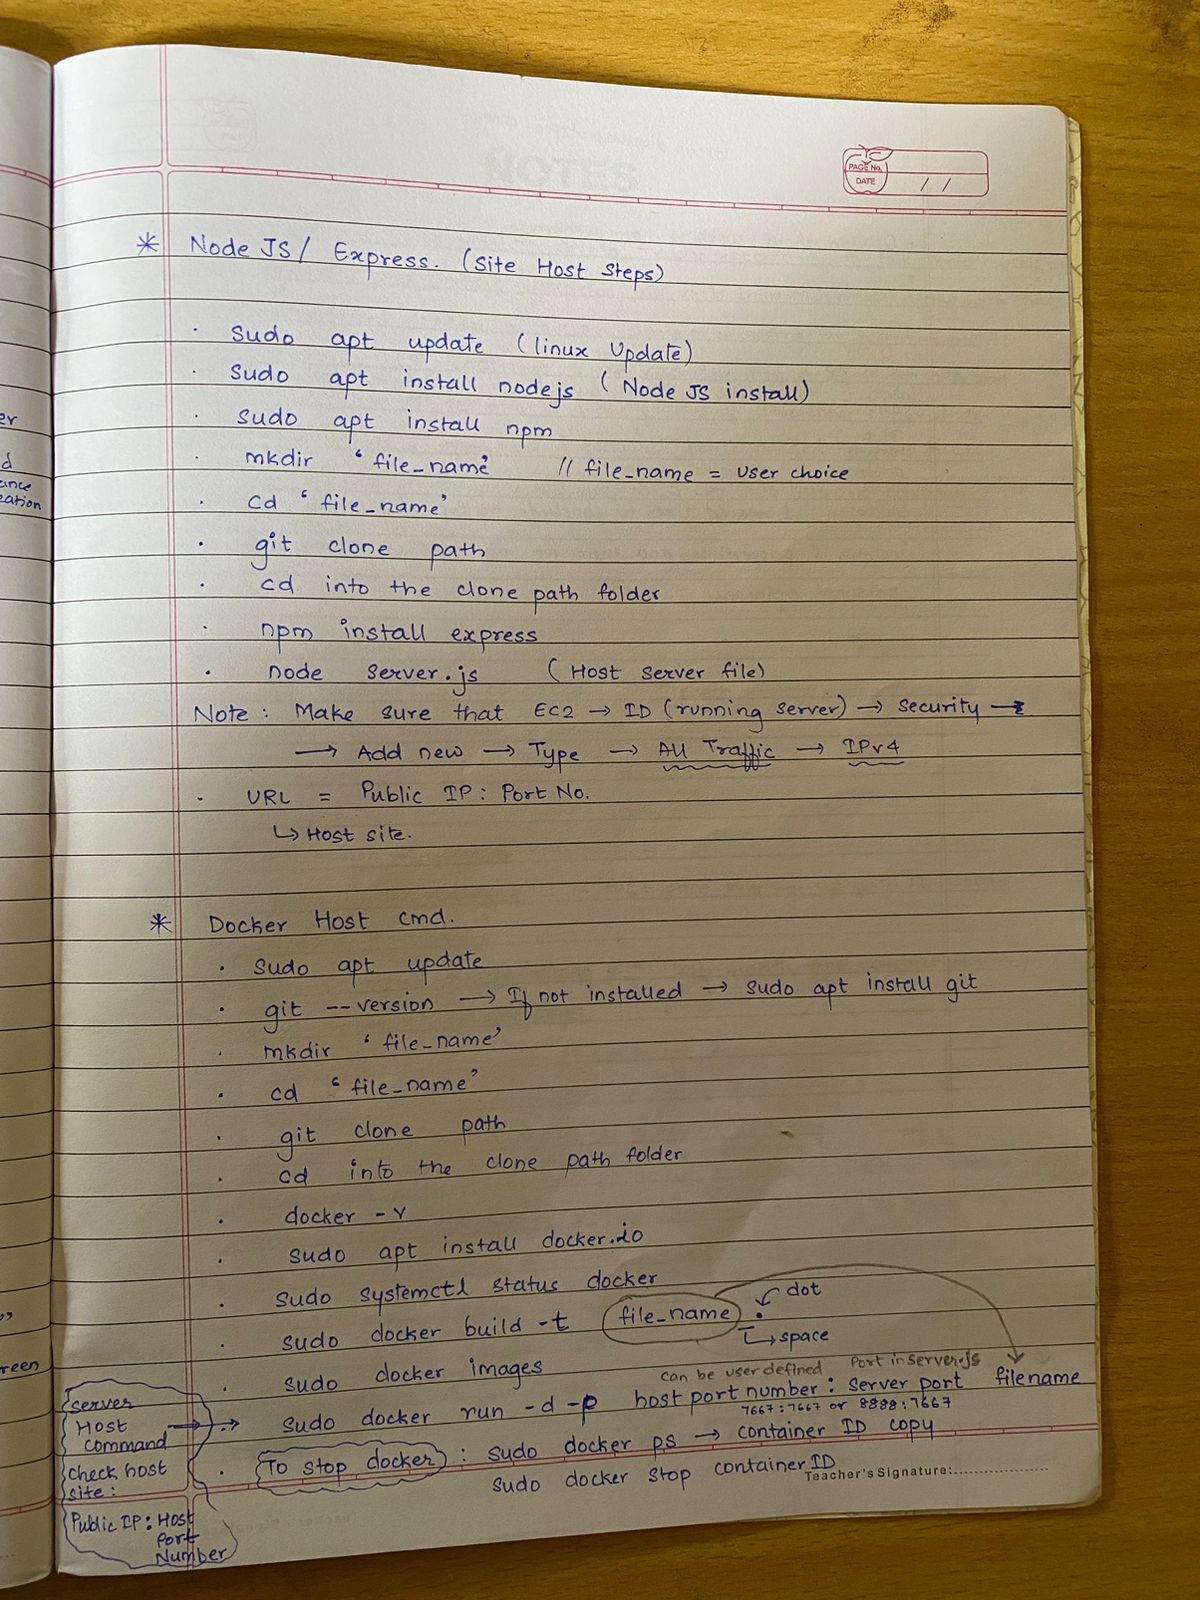 PAGE No.
DATE / /
* Node JS / Express. (Site Host Steps)
· sudo apt update (linux Update)
· sudo apt install nodejs (Node JS install)
· sudo apt install npm
· mkdir ‘file_name’ // file_name = user choice
· cd ‘file_name’
· git clone path
· cd into the clone path folder
· npm install express
· node server.js (Host Server file)
Note : Make sure that EC2 → ID (running server) → security →
→ Add new → Type → All Traffic → IPv4
· URL = Public IP : Port No.
↳ Host site.
* Docker Host cmd.
· sudo apt update
· git --version → If not installed → sudo apt install git
· mkdir ‘file_name’
· cd ‘file_name’
· git clone path
· cd into the clone path folder
· docker -v
· sudo apt install docker.io
· sudo systemctl status docker
· sudo docker build -t file_name .
dot
space
· sudo docker images
can be user defined Port in server.js
· sudo docker run -d -p host port number : server port filename
7667:7667 or 8888:7667
· To stop docker : sudo docker ps → container ID copy
sudo docker stop container ID
Teacher's Signature:
server
Host
command →
check host
site :
Public IP : Host
Port
Number
er
d
ance
eation
reen